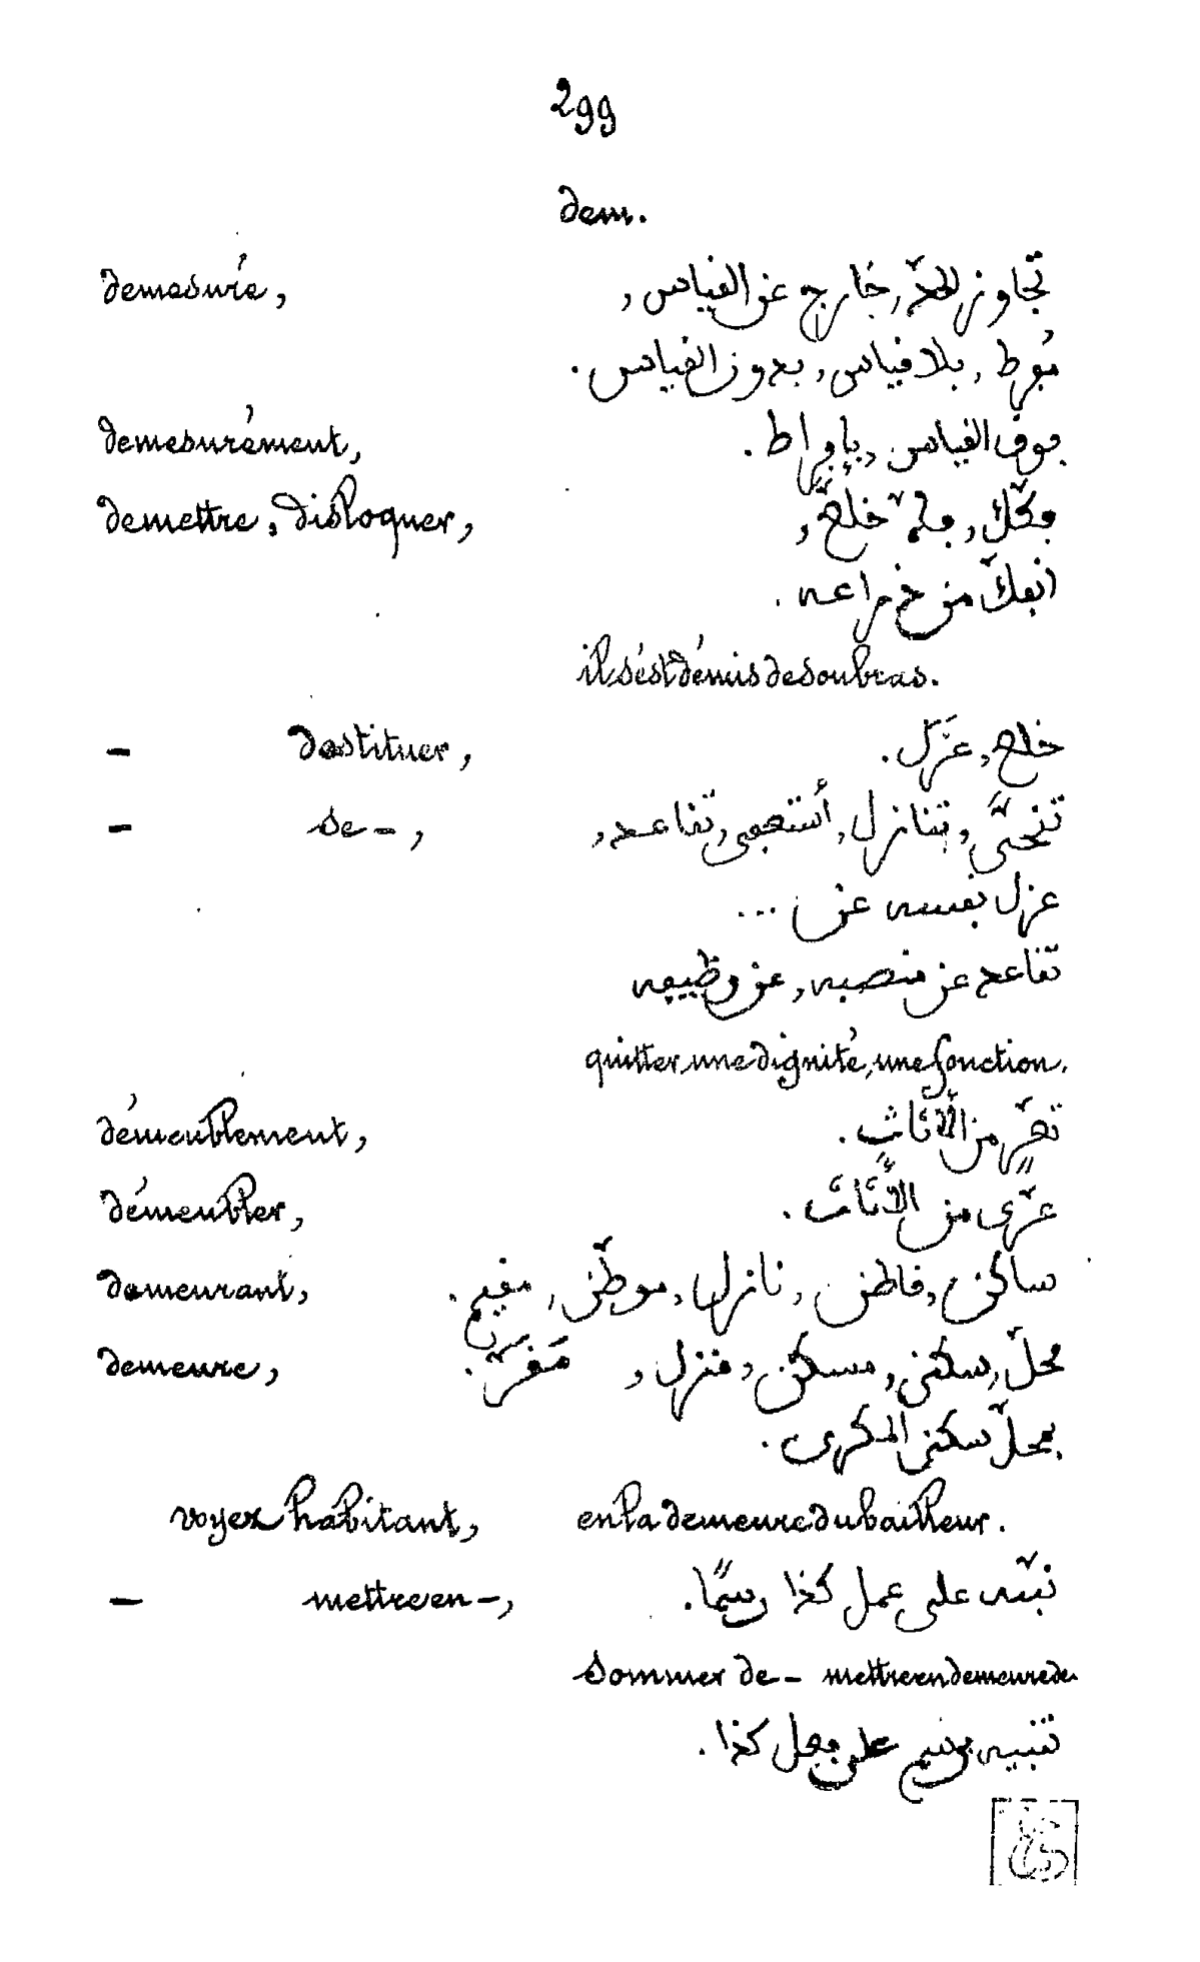 299
dem.
demesuré, تجاوز الحدّ, خارج عن القياس,
مُفرط, بلا قياس, بدون القياس.
demesurément, فوق القياس, بإفراط.
demettre, disloquer, فكّك, خلع,
انفكّ من ذراعه.
il s'est démis de son bras.
– destituer, خلع, عزَل.
– se –, تنحّى, تنازل, أستعفى, تقاعد,
عزل نفسه عن ...
تقاعد عن منصبه, عن وظيفه
quitter une dignité, une fonction.
démeublement, تعرٍّ من الأثاث.
démeubler, عرّى من الأثاث.
demeurant, ساكن, قاطن, نازل, موطّن, مقيم.
demeure, محلّ, سكنى, مسكن, منزل, مَقرّ.
بمحلّ سكنى المكرى.
voyez habitant, en la demeure du bailleur.
– mettre en –, نبّه على عمل كذا رسمًا.
sommer de – mettre en demeure de
تنبيه برسم على فعل كذا.